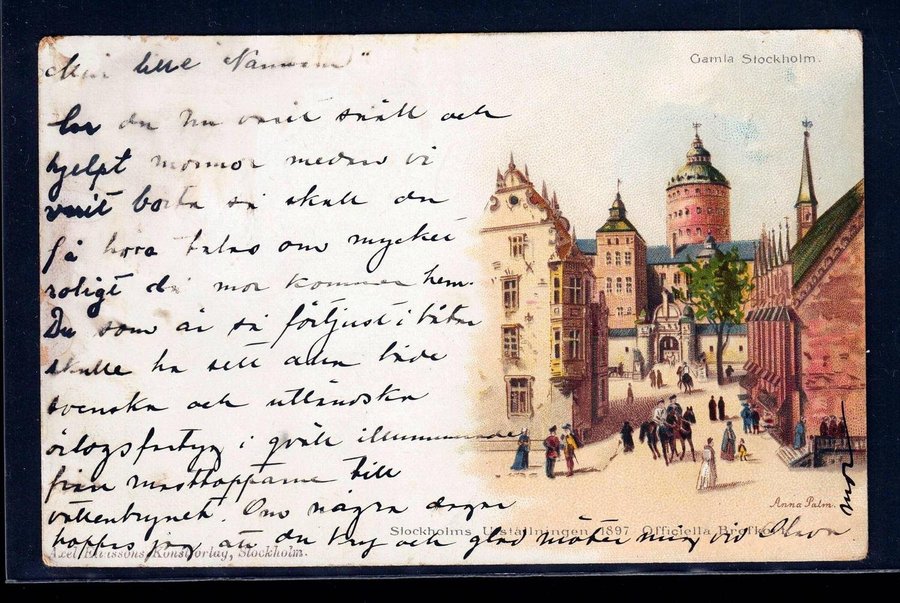 Min lille Nannem"
har du nu varit snäll och
hjelpt mormor medan vi
varit borta så skall du
få höra talas om mycket
roligt då mor kommer hem.
Du som är så förtjust i båtar
skulle ha sett alla både
svenska och utländska
örlogsfartyg i qväll illuminerade
från masttopparne till
vattenbrynet. Om några dagar
hoppas jag att du kry och glad möter mig vid
mor
Gamla Stockholm.
Anna Palm.
Stockholms Utställningen 1897. Officiella Brefkort
Axel Eliassons Konstförlag, Stockholm.